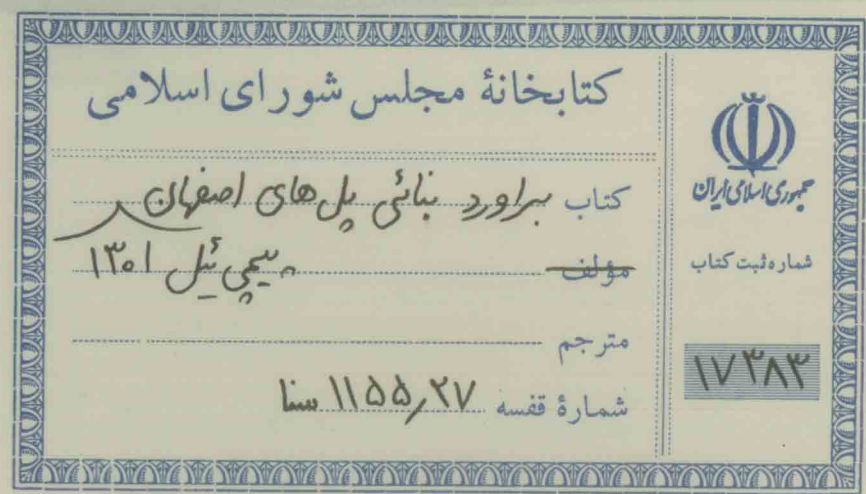 کتابخانهٔ مجلس شورای اسلامی
کتاب براورد بنائی پل های اصفهان
مؤلف پیچی ئیل ۱۳۰۱
مترجم
شمارهٔ قفسه ۱۱۵۵٫۲۷ سنا
جمهوری اسلامی ایران
شماره ثبت کتاب
۱۷۳۸۳